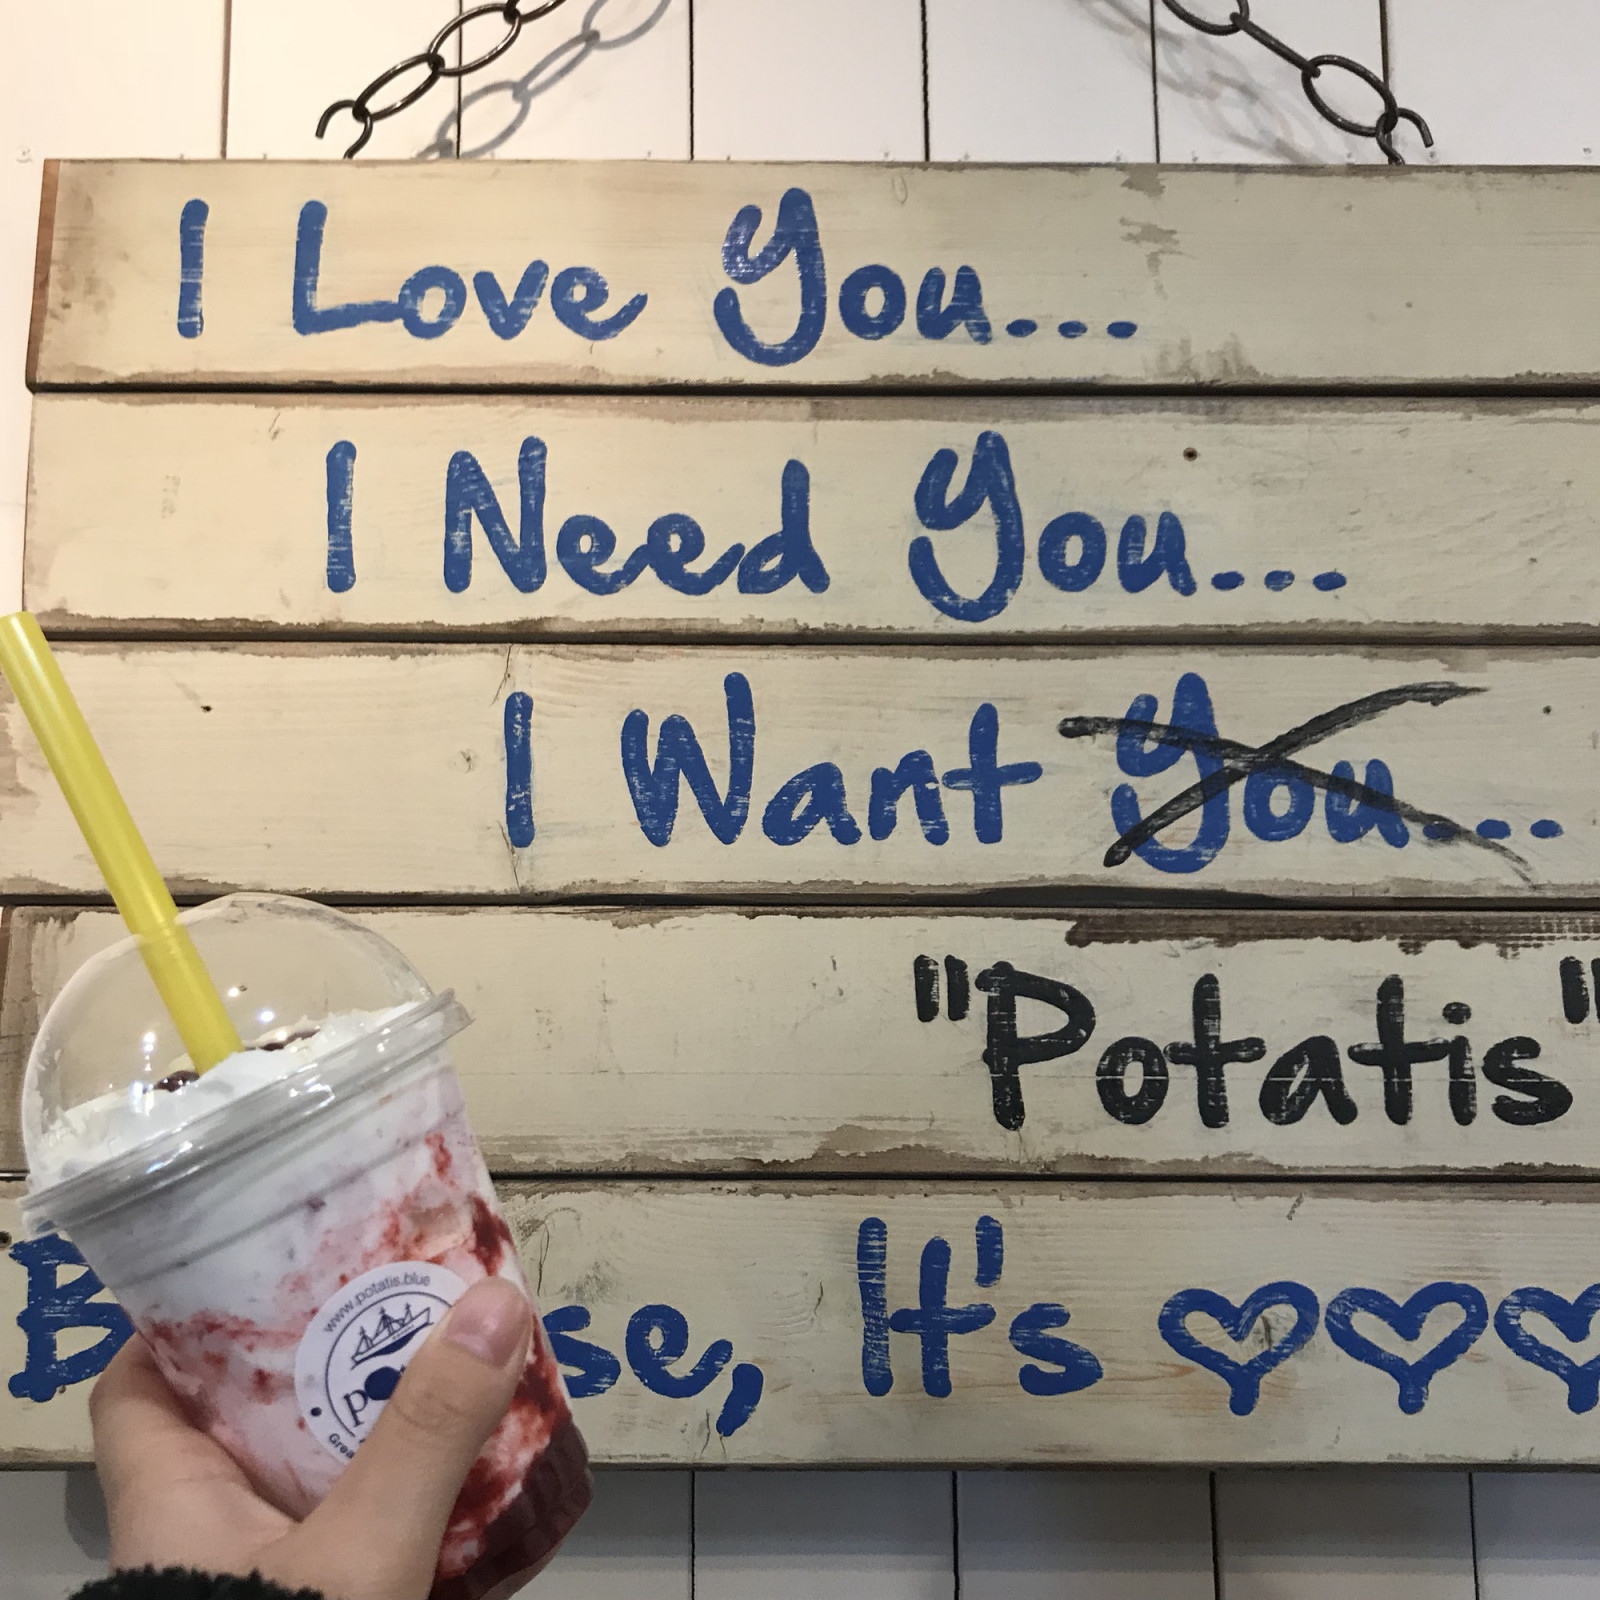 I Love You...
I Need You...
I Want You...
"Potatis"
It's
www.potatis.blue